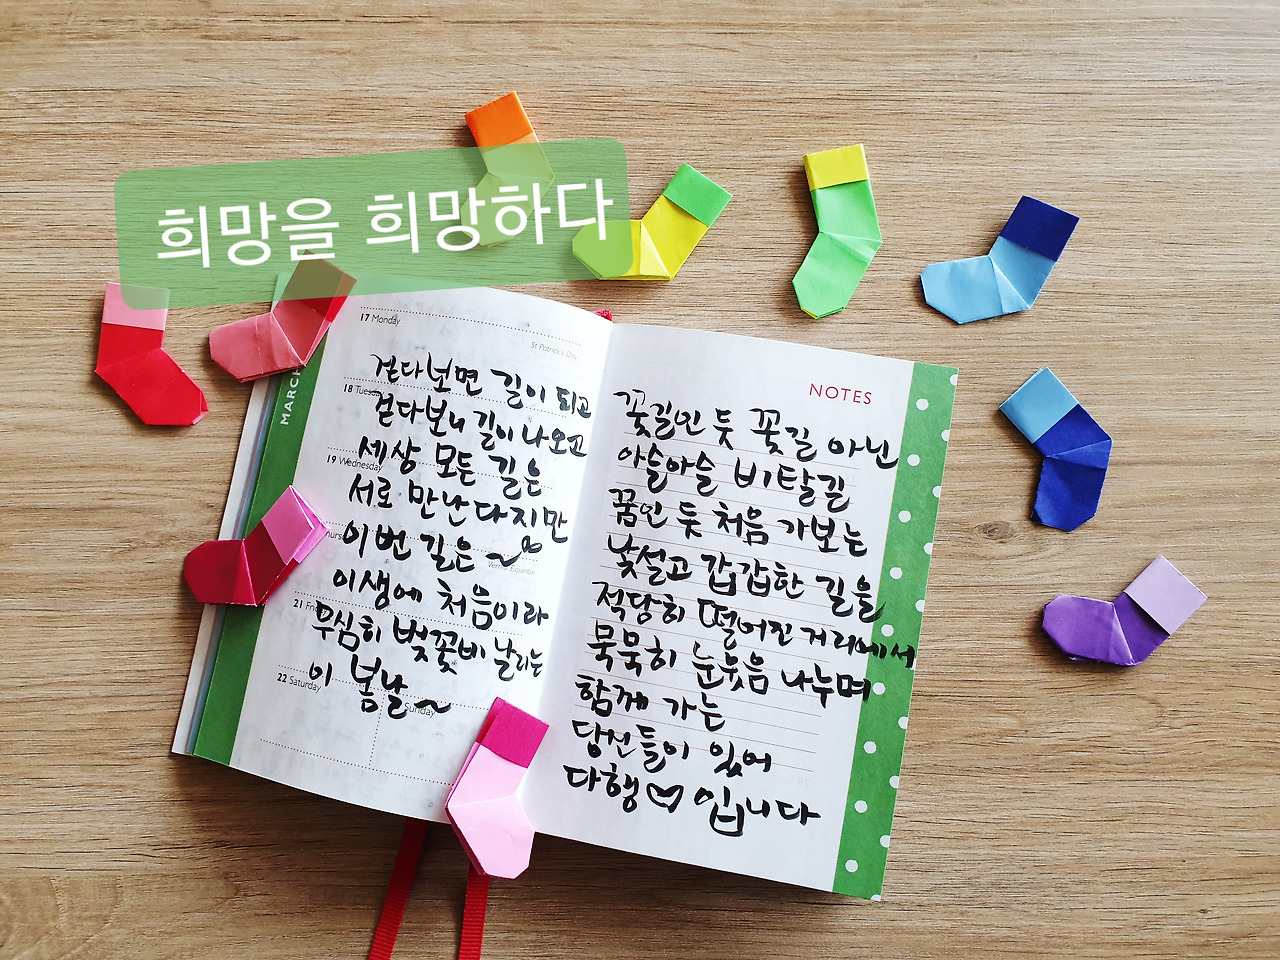 희망을 희망하다
MARCH
17 Monday
St Patrick's Day
걷다보면 길이 되고
18 Tuesday
걷다보니 길이 나오고
세상 모든 길은
19 Wednesday
서로 만난다지만
이번 길은~
Vernal Equinox
이생에 처음이라
21 Friday
무심히 벚꽃비 날리는
이 봄날~
22 Saturday
Sunday
NOTES
꽃길인 듯 꽃길 아닌
아슬아슬 비탈길
꿈인 듯 처음 가보는
낯설고 갑갑한 길을
적당히 떨어진 거리에서
묵묵히 눈웃음 나누며
함께 가는
당신들이 있어
다행♡입니다